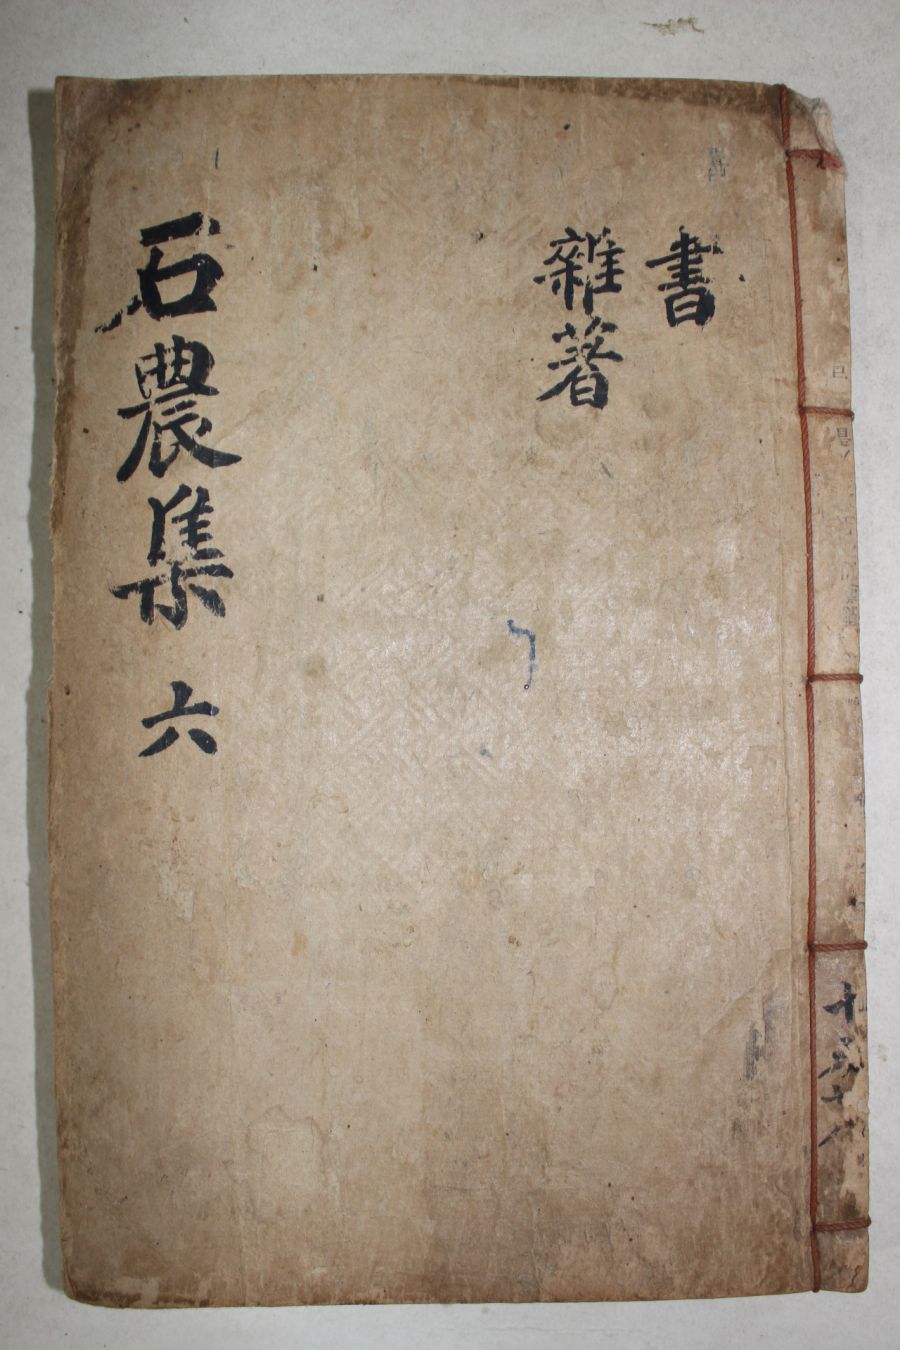 書
雜著
石農集 六